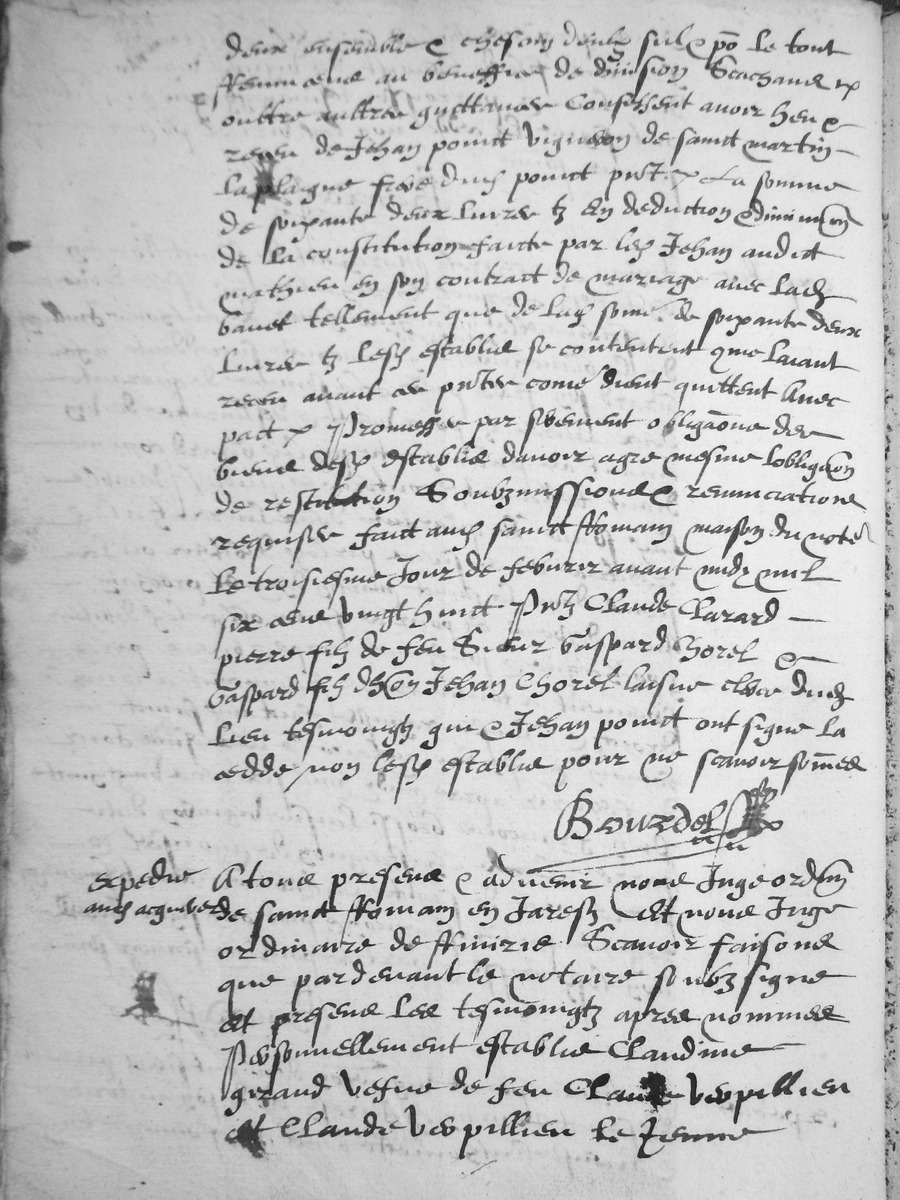 deux ensemble & chescun deulx sul & po le tout
Renuncens au beneffice de division Scachans &
outtre aultres quittances Confessent avoir heu &
receu de Jehan poinct vigneron de sainct martin
La plaigne filz dud poinct pnt & La somme
de soixante deux Livres tz En deduction & diminuon
de la constitution faicte par led Jehan audict
mathieu en son contract de mariage avec lad
tellement que de lad some de soixante deux
Livres tz Lesd establis se contentent que Layant
receu avant ces pntes come dient quittent Avec
pact & Promesses par serement obligaons des
biens desd establis davoir agre mesme lobligaon
de restitution Soubzmissions & renunciations
requises faict aud sainct Romain maison du note
Le troisiesme Jour de febvrier avant midy mil
six cens vingt huict Pntz Claude Larard
pierre filz de feu Sieur Gaspard Chorel &
Gaspard filz dhon Jehan Chorel laisne clerc dud
Lieu tesmoingtz qui & Jehan poinct ont signe La
cedde non lesd establis pour ne scavoir sommes
Bourdel
expedie
aud acquereur
A tous presens & advenir nous Juge ordin
de sainct Romain en Jarestz Et nous Juge
ordinaire de Rivirie Scavoir faisons
que pardevant le notaire soubz signe
Et presens Les tesmoingtz apres nommes
Personnellement establis Claudine
girand vefve de feu Claude verpillieu
Et Claude verpillieu le Jeune